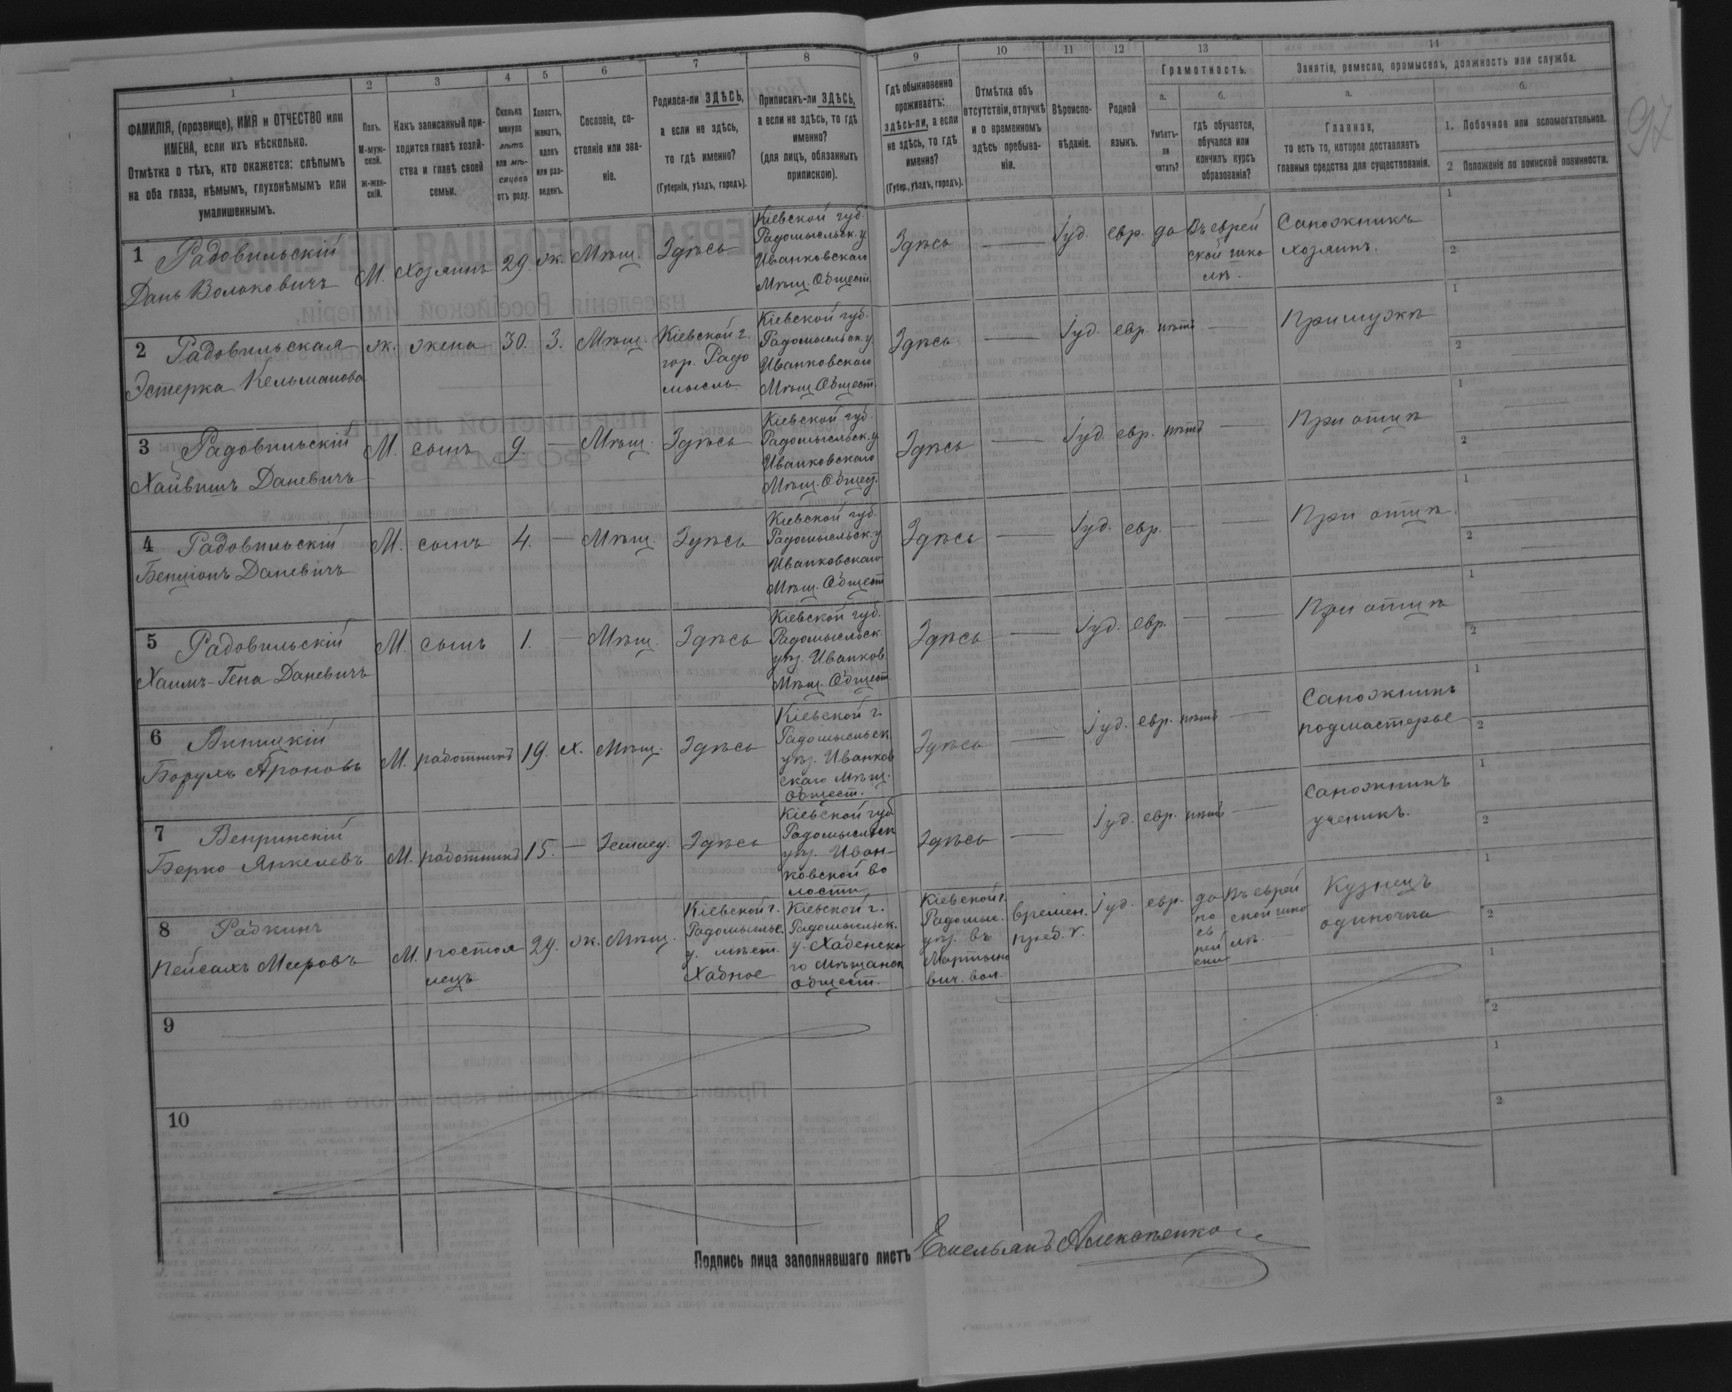 1 2 3 4 5 6 7 8 9 10 11 12 13 14
ФАМИЛІЯ, (прозвище), ИМЯ и ОТЧЕСТВО или
ИМЕНА, если ихъ нѣсколько.
Отмѣтка о тѣхъ, кто окажется: слѣпымъ
на оба глаза, нѣмымъ, глухонѣмымъ или
умалишеннымъ.
Полъ.
М-муж-
ской.
ж-жен-
скій.
Какъ записанный при-
ходится главѣ хозяй-
ства и главѣ своей
семьи.
Сколько
минуло
лѣтъ
или мѣ-
сяцевъ
отъ роду.
Холостъ,
женатъ,
вдовъ
или раз-
веденъ.
Сословіе, со-
стояніе или зва-
ніе.
Родился-ли ЗДѢСЬ,
а если не здѣсь,
то гдѣ именно?
(Губернія, уѣздъ, городъ).
Приписанъ-ли ЗДѢСЬ,
а если не здѣсь, то гдѣ
именно?
(для лицъ, обязанныхъ
припискою).
Гдѣ обыкновенно
проживаетъ:
ЗДѢСЬ-ли, а если
не здѣсь, то гдѣ
именно?
(Губер., уѣздъ, городъ).
Отмѣтка объ
отсутствіи, отлучкѣ
и о временномъ
здѣсь пребыва-
ніи.
Вѣроиспо-
вѣданіе.
Родной
языкъ.
Грамотность.
а.
Умѣетъ-
ли
читать?
б.
гдѣ обучается,
обучался или
кончилъ курсъ
образованія?
Занятія, ремесло, промыселъ, должность или служба.
а.
Главное,
то есть то, которое доставляетъ
главныя средства для существованія.
б.
1. Побочное или вспомогательное.
2 Положеніе по воинской повинности.
97
1 Радовильскій
Дань Волоковичъ
М. хозяинъ 29. ж. Мѣщ. Здѣсь
Кіевской губ.
Радомысльск. у
Иванковскаго
Мѣщ. Общест
Здѣсь — Іуд. евр. да
Въ еврей
ской шко
лѣ.
Сапожникъ
хозяинъ.
1
2
2 Радовильская
Эстерка Кельманова
ж. жена 30. З. Мѣщ.
Кіевской г.
гор. Радо
мысль
Кіевской губ.
Радомысльск. у
Иванковскаго
Мѣщ. Общест.
Здѣсь — Іуд. евр. нѣтъ —
При мужѣ
1
2
3 Радовильскій
Даневичъ
М. сынъ 9. — Мѣщ. Здѣсь
Кіевской губ.
Радомысльск. у
Иванковскаго
Мѣщ. Общест.
Здѣсь — Іуд. евр. нѣтъ —
При отцѣ
1
2
4 Радовильскій
Бенціонъ Даневичъ
М. сынъ 4. — Мѣщ. Здѣсь
Кіевской губ.
Радомысльск. у
Иванковскаго
Мѣщ. Общест
Здѣсь — Іуд. евр. — —
При отцѣ.
1
2
5 Радовильскій
Хаимъ-Гена Даневичъ
М. сынъ 1. — Мѣщ. Здѣсь
Кіевской губ.
Радомысльск.
уѣз. Иванков
Мѣщ. Общест
Здѣсь — Іуд. евр. — —
При отцѣ
1
2
6 Винницкій
Борухъ Ароновъ
М. работникъ 19. х. Мѣщ. Здѣсь
Кіевской г.
Радомысльск
уѣз. Иванков
скаго мѣщ.
Общест.
Здѣсь — Іуд. евр. нѣтъ —
Сапожникъ
подмастерье
1
2
7 Вепринскій
Берко Янкелевъ
М. работникъ 15. — Здѣсь
Кіевской губ
Радомысльск
уѣз. Иван-
ковской во
лости
Здѣсь — Іуд. евр. нѣтъ —
Сапожникъ
ученикъ.
1
2
8 Радкинъ
Пейсахъ Мееровъ
М. постоя
лецъ
29. ж. Мѣщ.
Кіевской г.
Радомысльс.
у. мѣст.
Хабное
Кіевской г.
Радомысльск.
у. Хабенска
го Мѣщанск
Общест.
Кіевской г.
Радомыс.
уѣз. въ
Мартыно
вич. вол.
времен.
преб.
Іуд. евр.
да
по
ев
рей
ски
Въ еврей
ской шко
лѣ.
Кузнецъ
одиночка
1
2
9
1
2
10
1
2
Подпись лица заполнявшаго листъ Емельянъ